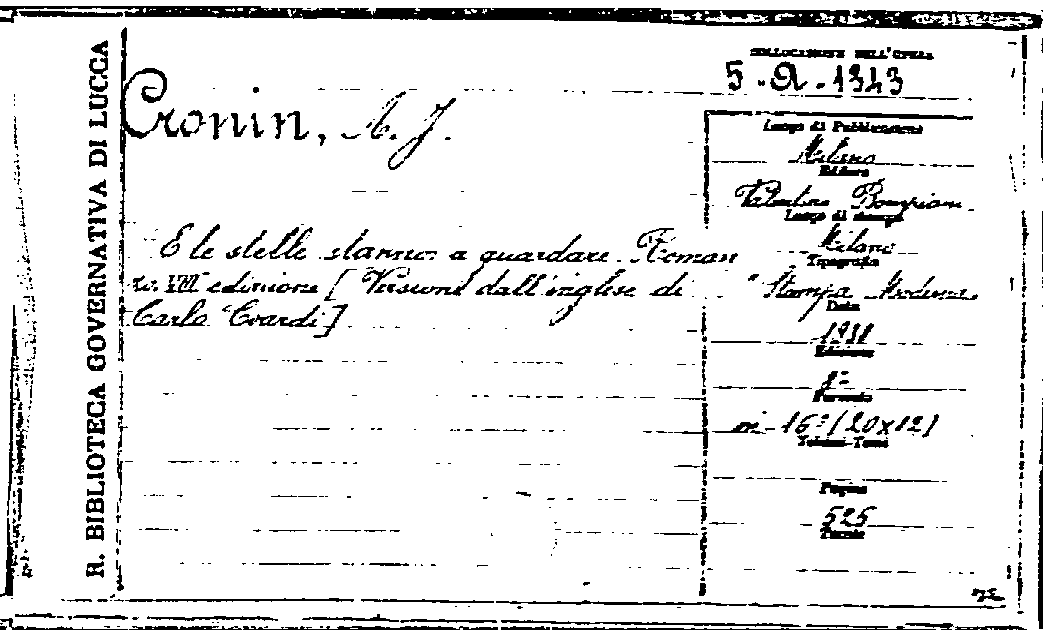 R. BIBLIOTECA GOVERNATIVA DI LUCCA
COLLOCAZIONE DELL'OPERA
5.a.1343
Cronin, A. J.
E le stelle stanno a guardare. Roman
zo. VIII edizione [Versione dall'inglese di
Carlo Coardi]
Luogo di Pubblicazione
Milano
Editore
Valentino Bompiani
Luogo di stampa
Milano
Tipografia
"Stampa Moderna
Data
1938
Edizione
8ª
Formato
in-16° (20x12)
Volumi-Tomi
Pagine
525
Tavole